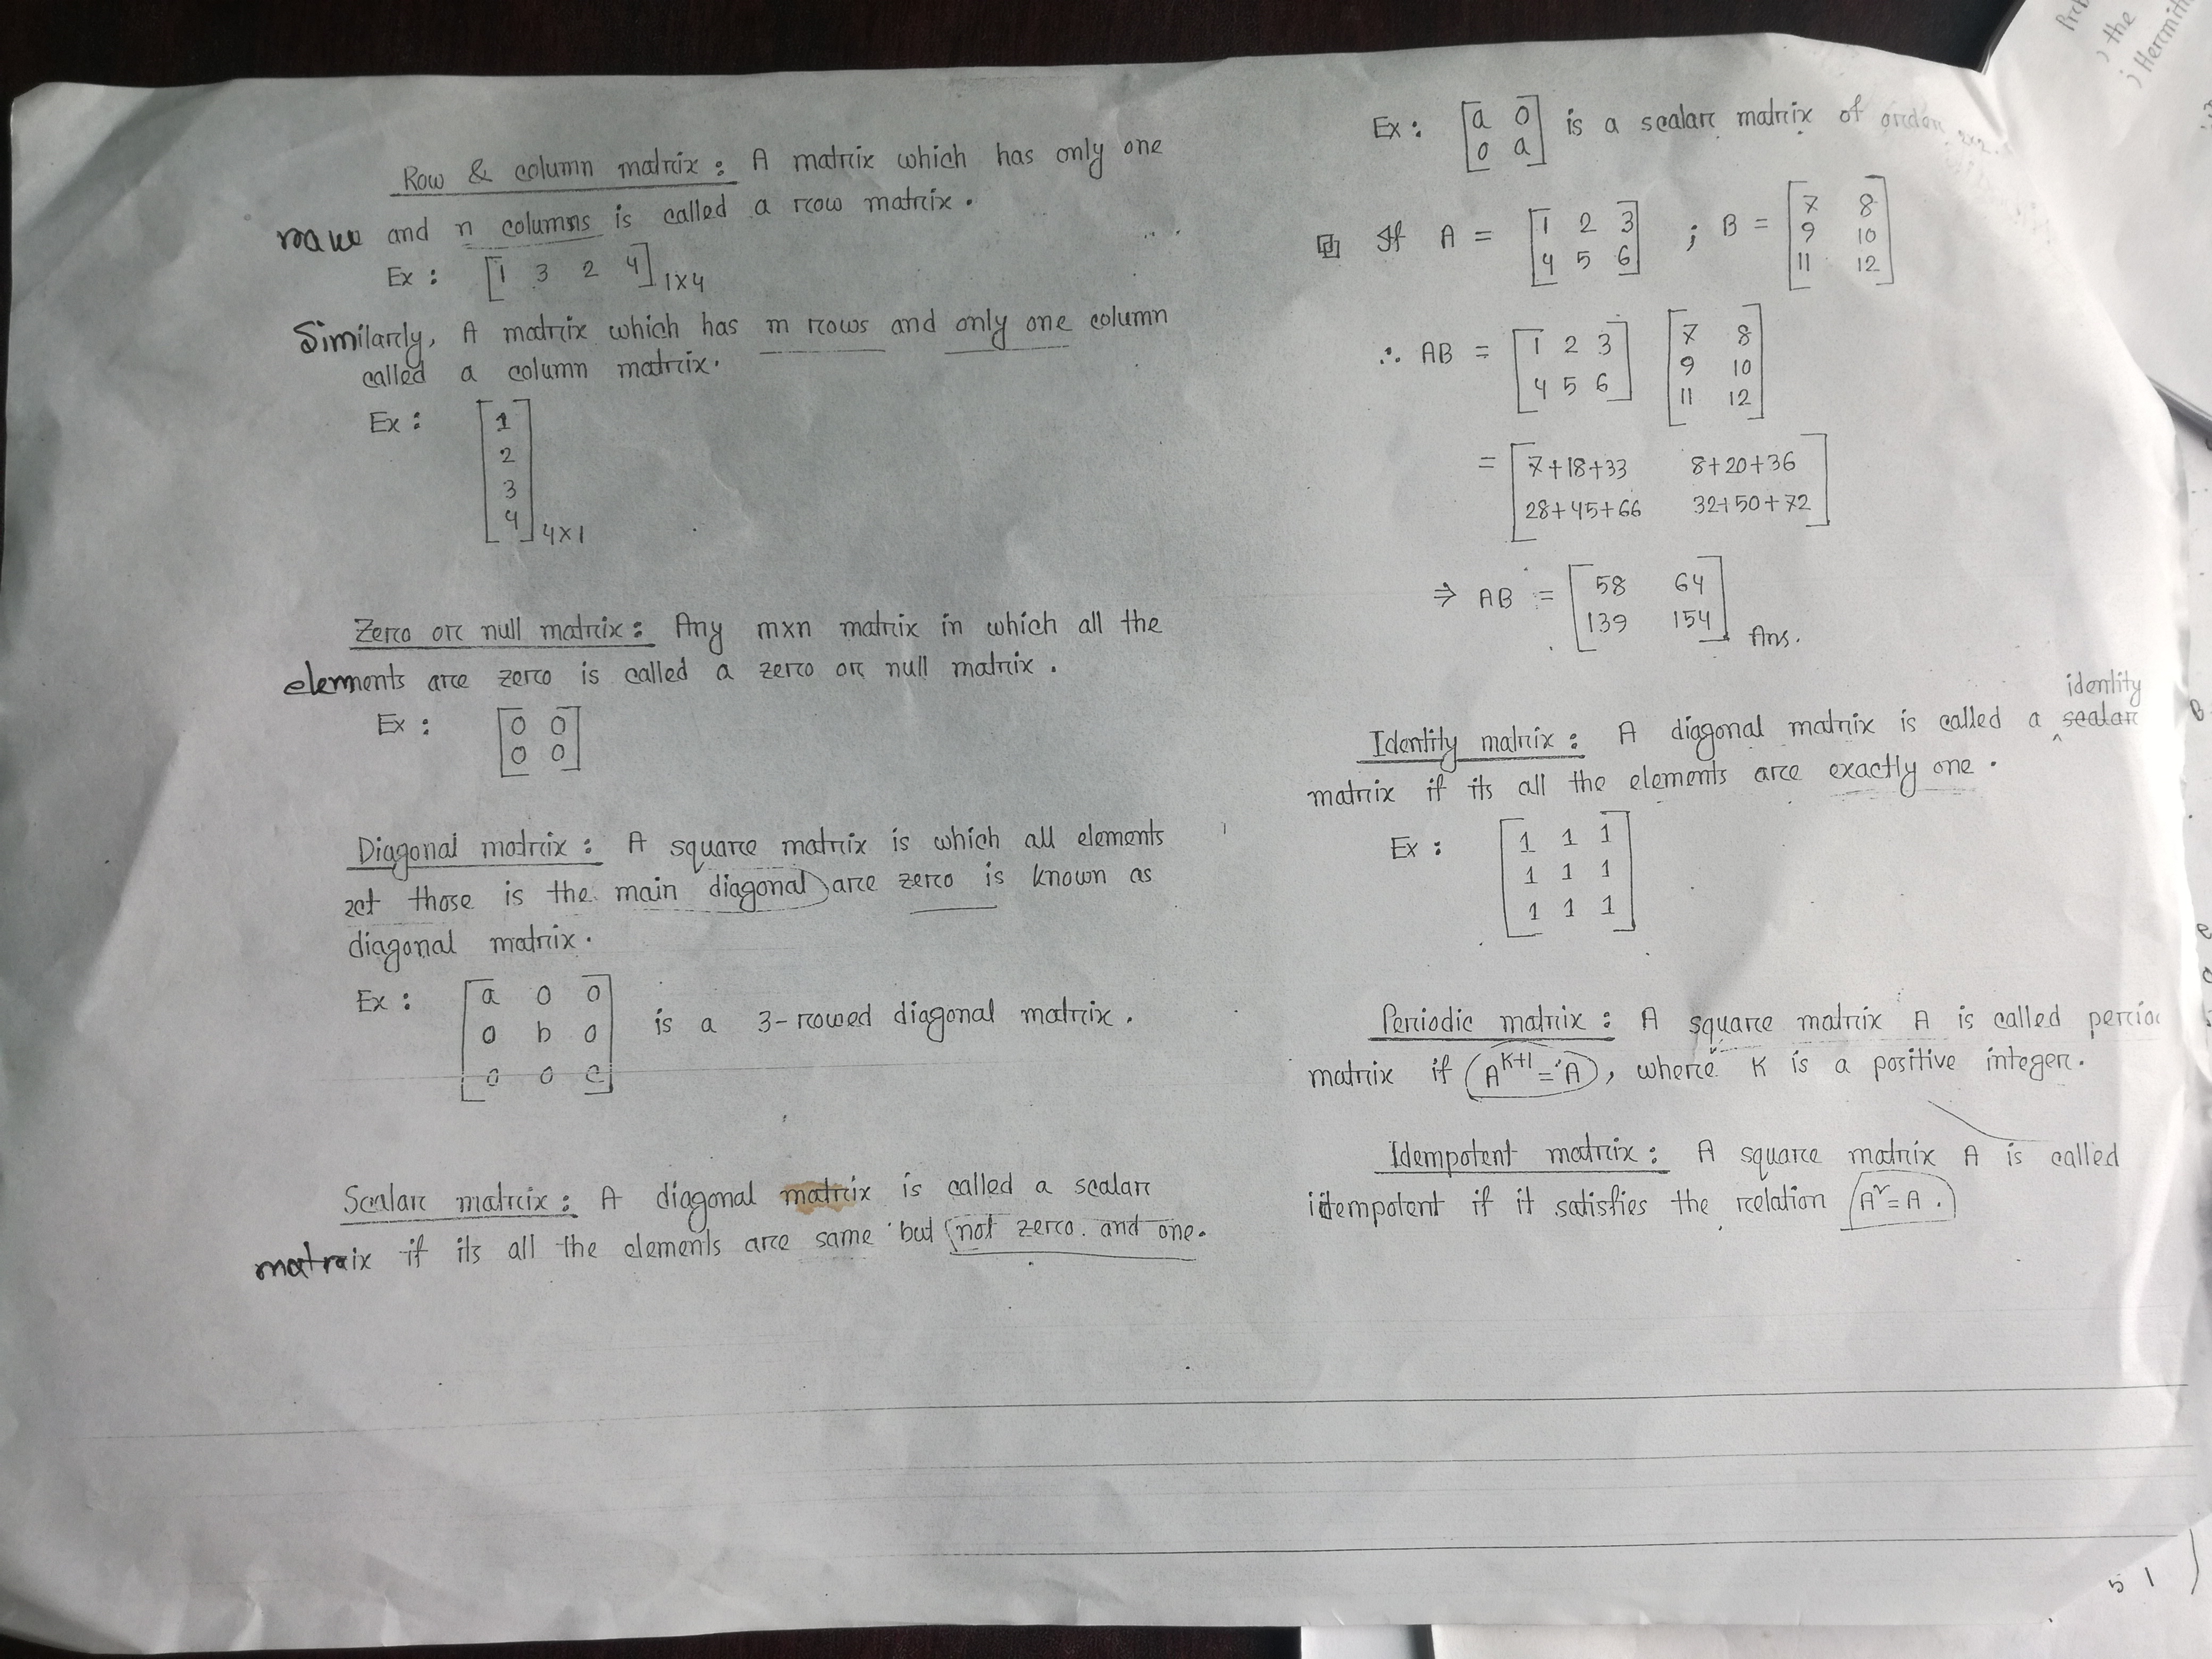 Row & column matrix : A matrix which has only one
and n columns is called a row matrix.
Ex : [1 3 2 4] 1x4
Similarly, A matrix which has m rows and only one column
called a column matrix.
Ex : [1
2
3
4] 4x1
Zero or null matrix : Any mxn matrix in which all the
elements are zero is called a zero or null matrix.
Ex : [0 0
0 0]
Diagonal matrix : A square matrix is which all elements
those is the main diagonal are zero is known as
diagonal matrix.
Ex : [a 0 0
0 b 0
0 0 c] is a 3-rowed diagonal matrix.
Scalar matrix : A diagonal matrix is called a scalar
matraix if its all the elements are same but not zero and one.
Ex : [a 0
0 a] is a scalar matrix of order 2x2.
If A = [1 2 3
4 5 6] ; B = [7 8
9 10
11 12]
∴ AB = [1 2 3
4 5 6] [7 8
9 10
11 12]
= [7+18+33 8+20+36
28+45+66 32+50+72]
⇒ AB = [58 64
139 154] Ans.
identity
Identity matrix : A diagonal matrix is called a scalar
matrix if its all the elements are exactly one.
Ex : [1 1 1
1 1 1
1 1 1]
Periodic matrix : A square matrix A is called perio
matrix if A^K+1 = A, where K is a positive integer.
Idempotent matrix : A square matrix A is called
idempotent if it satisfies the relation A² = A.
the
Hermit
51